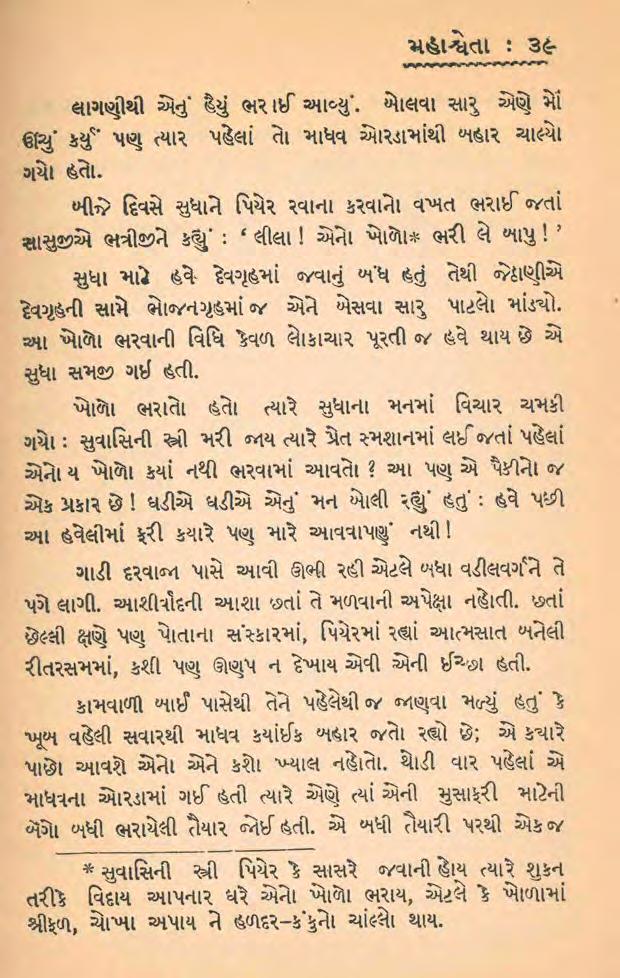 મહાશ્વેતા : ૩૯
લાગણીથી એનું હૈયું ભરાઈ આવ્યું. બોલવા સારુ એણે મોં
ઊંચું કર્યું પણ ત્યાર પહેલાં તો માધવ ઓરડામાંથી બહાર ચાલ્યો
ગયો હતો.
બીજે દિવસે સુધાને પિયેર રવાના કરવાનો વખત ભરાઈ જતાં
સાસુજીએ ભત્રીજીને કહ્યું : ‘ લીલા ! એનો ખોળો* ભરી લે બાપુ ! ’
સુધા માટે હવે દેવગૃહમાં જવાનું બંધ હતું તેથી જેઠાણીએ
દેવગૃહની સામે ભોજનગૃહમાં જ એને બેસવા સારુ પાટલો માંડ્યો.
આ ખોળો ભરવાની વિધિ કેવળ લોકાચાર પૂરતી જ હવે થાય છે એ
સુધા સમજી ગઈ હતી.
ખોળો ભરાતો હતો ત્યારે સુધાના મનમાં વિચાર ચમકી
ગયો : સુવાસિની સ્ત્રી મરી જાય ત્યારે પ્રેત સ્મશાનમાં લઈ જતાં પહેલાં
એનો ય ખોળો કયાં નથી ભરવામાં આવતો ? આ પણ એ પૈકીનો જ
એક પ્રકાર છે ! ઘડીએ ઘડીએ એનું મન બોલી રહ્યું હતું : હવે પછી
આ હવેલીમાં ફરી કયારે પણ મારે આવવાપણું નથી !
ગાડી દરવાજા પાસે આવી ઊભી રહી એટલે બધા વડીલવર્ગને તે
પગે લાગી. આશીર્વાદની આશા છતાં તે મળવાની અપેક્ષા નહોતી. છતાં
છેલ્લી ક્ષણે પણ પોતાના સંસ્કારમાં, પિયેરમાં રહ્યાં આત્મસાત બનેલી
રીતરસમમાં, કશી પણ ઊણપ ન દેખાય એવી એની ઈચ્છા હતી.
કામવાળી બાઈ પાસેથી તેને પહેલેથી જ જાણવા મળ્યું હતું કે
ખૂબ વહેલી સવારથી માધવ કયાંઈક બહાર જતો રહ્યો છે; એ કયારે
પાછો આવશે એનો એને કશો ખ્યાલ નહોતો. થોડી વાર પહેલાં એ
માધવના ઓરડામાં ગઈ હતી ત્યારે એણે ત્યાં એની મુસાફરી માટેની
બેંગો બધી ભરાયેલી તૈયાર જોઈ હતી. એ બધી તૈયારી પરથી એક જ
* સુવાસિની સ્ત્રી પિયેર કે સાસરે જવાની હોય ત્યારે શુકન
તરીકે વિદાય આપનાર ઘરે એનો ખોળો ભરાય, એટલે કે ખોળામાં
શ્રીફળ, ચોખા અપાય ને હળદર–કંકુનો ચાંલ્લો થાય.